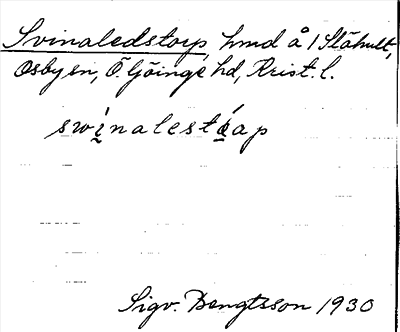 Svinaledstorp, hmd å 1 Slähult,
Osby sn, Ö. Göinge hd, Krist. l.
swinalestáap
Sigv. Bengtsson 1930